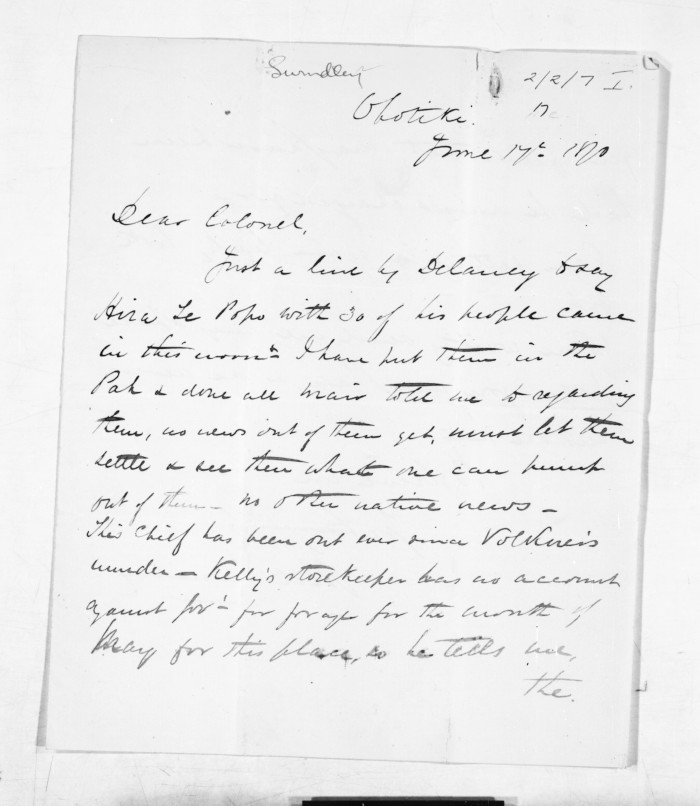 Swindley
2/2/7 I.
Opotiki.
June 17th 1870
Dear Colonel,
Just a line by Delaney to say
Hira Te Popo with 30 of his people came
in this morng I have put them in the
Pah & done all Mair told me to regarding
them, no news out of them yet, must let them
settle & see then what one can pump
out of them - no other native news -
This Chief has been out ever since Volkner's
murder - Kelly's storekeeper has no account
against Govt for forage for the month of
May for this place, so he tells me,
the.